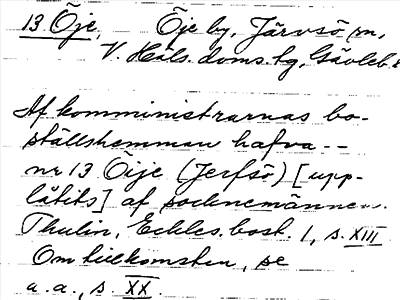 13 Öje. Öje by, Järvsö sn,
V. Häls. doms. hg, Gävleb. l
Af komministrarnas bo-
ställshemman hafva --
nr 13 Öije (Jerfsö) [upp-
låtits] af socknemännen.
Thulin, Eckles. bost. 1, s. XIII
Om tillkomsten, se
a. a., s. XX.